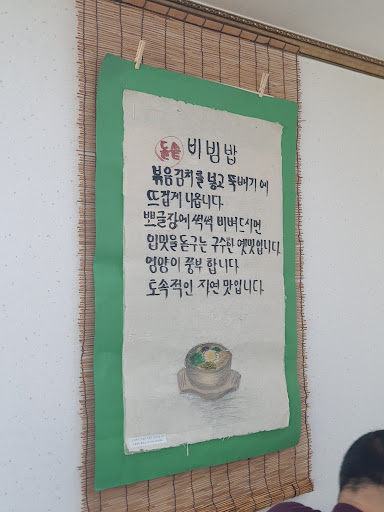 돌솥 비빔밥
볶음김치를 넣고 뚝배기에
뜨겁게 나옵니다.
뽀글장에 썩썩 비벼드시면
입맛을 돋구는 구수한 옛맛입니다.
영양이 풍부 합니다.
토속적인 자연 맛입니다.